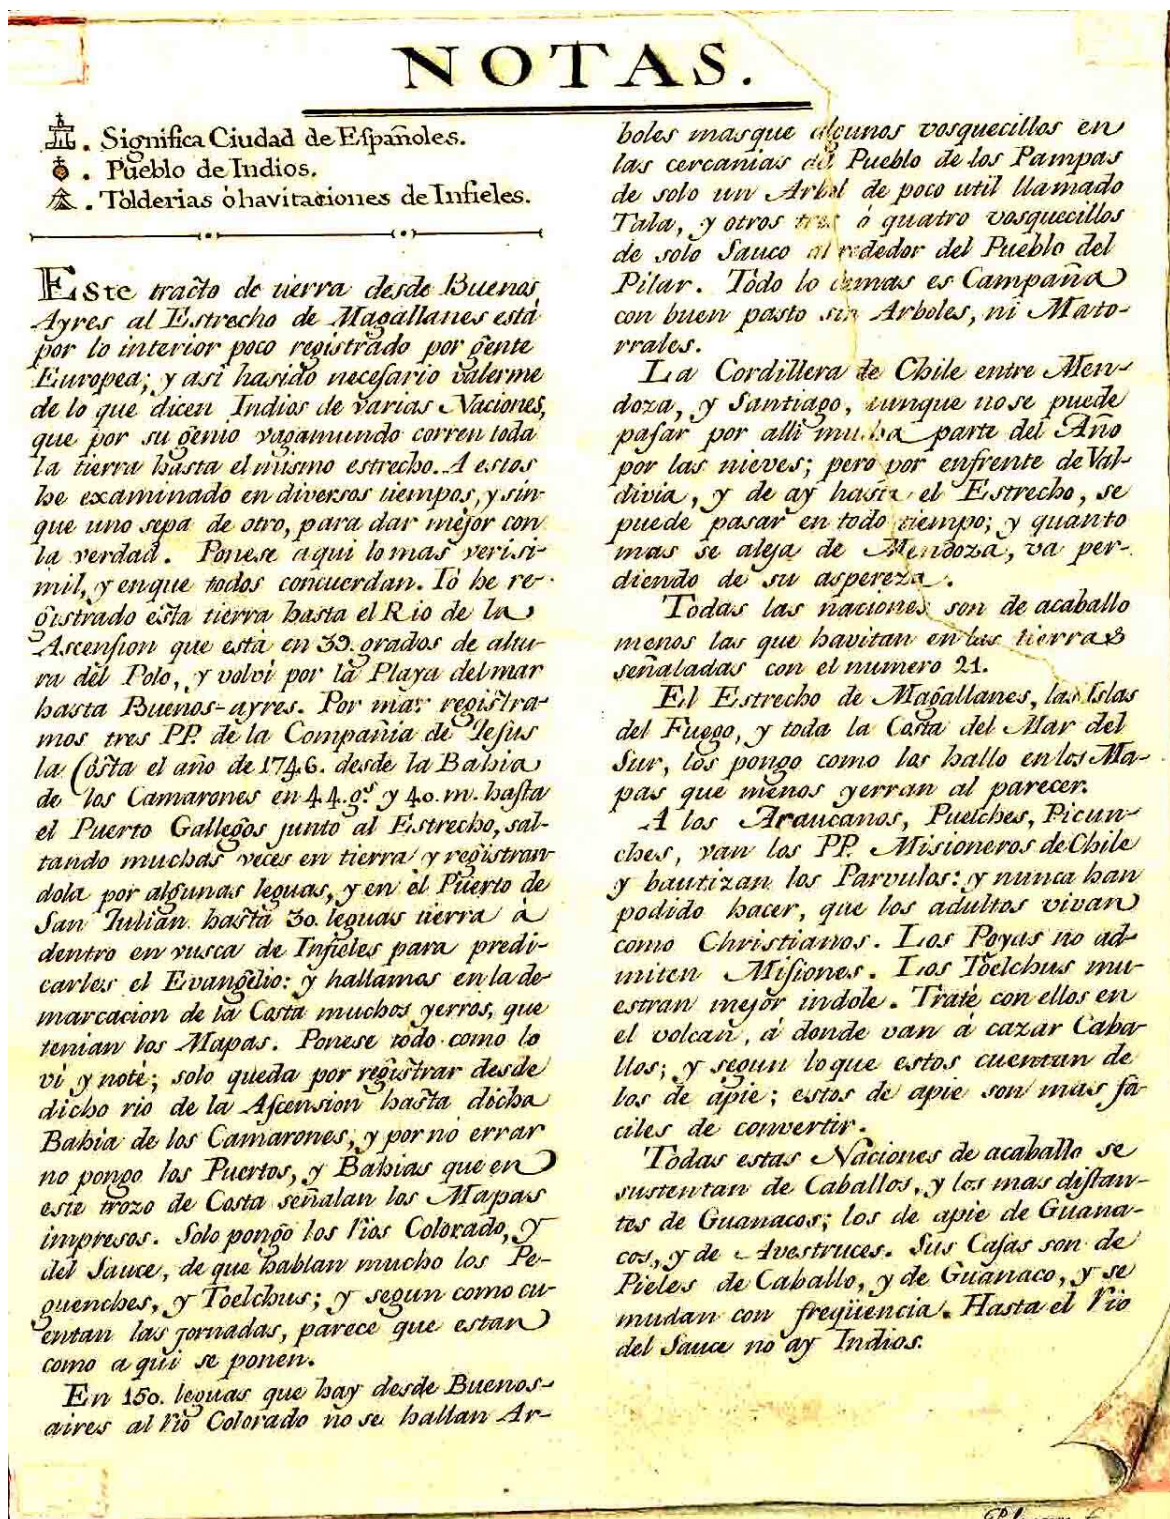 NOTAS.
. Significa Ciudad de Españoles.
. Pueblo de Indios.
. Tolderias ò havitaciones de Infieles.
Este tracto de tierra desde Buenos
Ayres al Estrecho de Magallanes está
por lo interior poco registrado por gente
Europea; y asi hasido necesario valerme
de lo que dicen Indios de varias Naciones,
que por su genio vagamundo corren toda
la tierra hasta el mismo estrecho. A estos
he examinado en diversos tiempos, y sin
que uno sepa de otro, para dar mejor con
la verdad. Ponese aqui lo mas verisi-
mil, y enque todos concuerdan. Io he re-
gistrado esta tierra hasta el Rio de la
Ascension que està en 39. grados de altu-
ra del Polo, y volvi por la Playa del mar
hasta Buenos-ayres. Por mar registra-
mos tres PP. de la Compañia de Jesus
la Costa el año de 1746. desde la Bahia
de los Camarones en 44.gs. y 40. m. hasta
el Puerto Gallegos junto al Estrecho, sal-
tando muchas veces en tierra y registran-
dola por algunas leguas, y en el Puerto de
San Julian hasta 30. leguas tierra à
dentro en vusca de Infieles para predi-
carles el Evangelio: y hallamos en la de-
marcacion de la Costa muchos yerros, que
tenian los Mapas. Ponese todo como lo
vi y noté; solo queda por registrar desde
dicho rio de la Ascension hasta dicha
Bahia de los Camarones, y por no errar
no pongo los Puertos, y Bahias que en
este trozo de Costa señalan los Mapas
impresos. Solo pongo los rios Colorado, y
del Sauce, de que hablan mucho los Pe-
guenches, y Toelchus; y segun como cu-
entan las jornadas, parece que estan
como a qui se ponen.
En 150. leguas que hay desde Buenos-
aires al rio Colorado no se hallan Ar-
boles masque algunos vosquecillos en
las cercanias del Pueblo de los Pampas
de solo un Arbol de poco util llamado
Tala, y otros tres ò quatro vosquecillos
de solo Sauco al rededor del Pueblo del
Pilar. Todo lo demas es Campaña
con buen pasto sin Arboles, ni Mato-
rrales.
La Cordillera de Chile entre Men-
doza, y Santiago, aunque no se puede
pasar por alli mucha parte del Año
por las nieves; pero por enfrente de Val-
divia, y de ay hasta el Estrecho, se
puede pasar en todo tiempo; y quanto
mas se aleja de Mendoza, va per-
diendo de su aspereza.
Todas las naciones son de acaballo
menos las que havitan en las tierras
señaladas con el numero 21.
El Estrecho de Magallanes, las Islas
del Fuego, y toda la Costa del Mar del
Sur, los pongo como los hallo en los Ma-
pas que menos yerran al parecer.
A los Araucanos, Puelches, Picun-
ches, van los PP. Misioneros de Chile
y bautizan los Parvulos: y nunca han
podido hacer, que los adultos vivan
como Christianos. Los Poyas no ad-
miten Misiones. Los Toelchus mu-
estran mejor indole. Traté con ellos en
el volcan, à donde van à cazar Caba-
llos; y segun loque estos cuentan de
los de apie; estos de apie son mas fa-
ciles de convertir.
Todas estas Naciones de acaballo se
sustentan de Caballos, y los mas distan-
tes de Guanacos; los de apie de Guana-
cos, y de Avestruces. Sus Casas son de
Pieles de Caballo, y de Guanaco, y se
mudan con freqüencia. Hasta el rio
del Sauce no ay Indios.